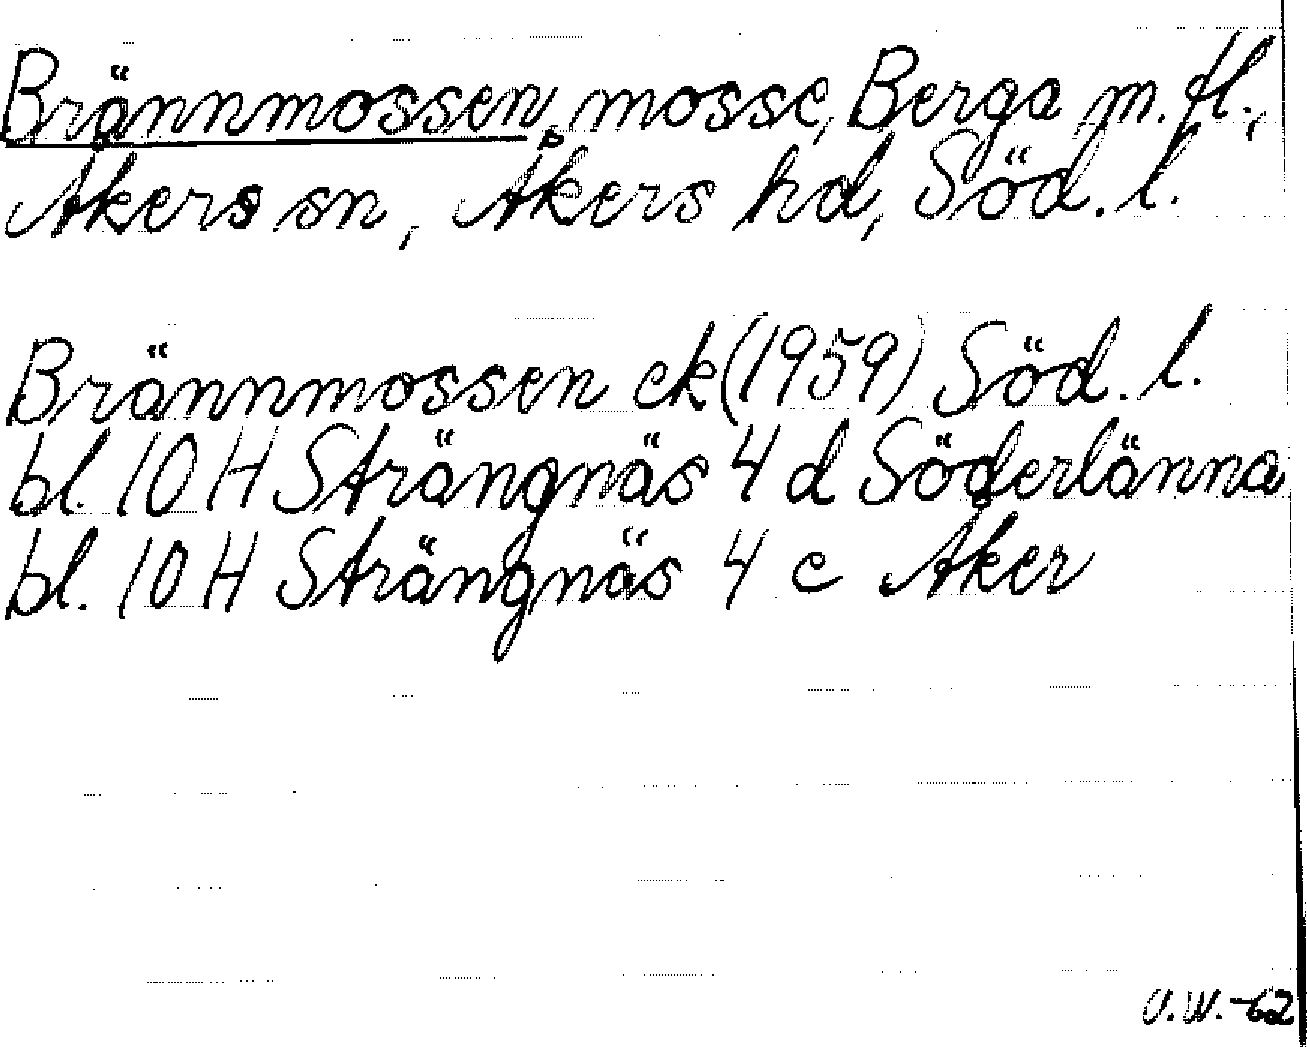 Brännmossen, mosse, Berga m.fl.,
Åkers sn, Åkers hd, Söd.l.
Brännmossen ek (1959) Söd.l.
bl. 10 H Strängnäs 4 d Söderlänna
bl. 10 H Strängnäs 4 e Åker
U.W.-62